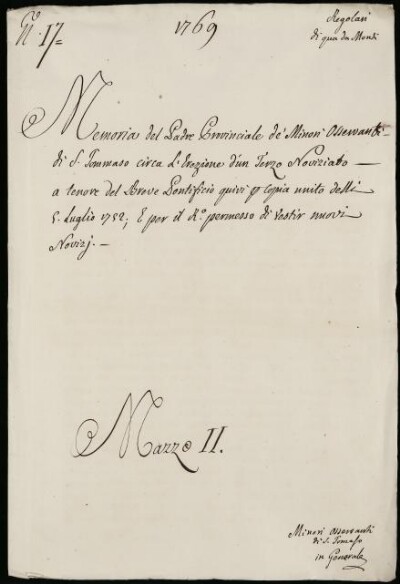 N.º 17=
1769
Regolari
di qua da Monti
Memoria del Padre Provinciale de' Minori Osservanti
di S. Tommaso circa l'Erezione d'un Terzo Noviziato —
a tenore del Breve Pontificio quivi p copia unito delli
5. Luglio 1752; E per il R.º permesso di vestir nuovi
Novizj. —
Mazzo II.
Minori Osservanti
di S. Tomaso
in Generale